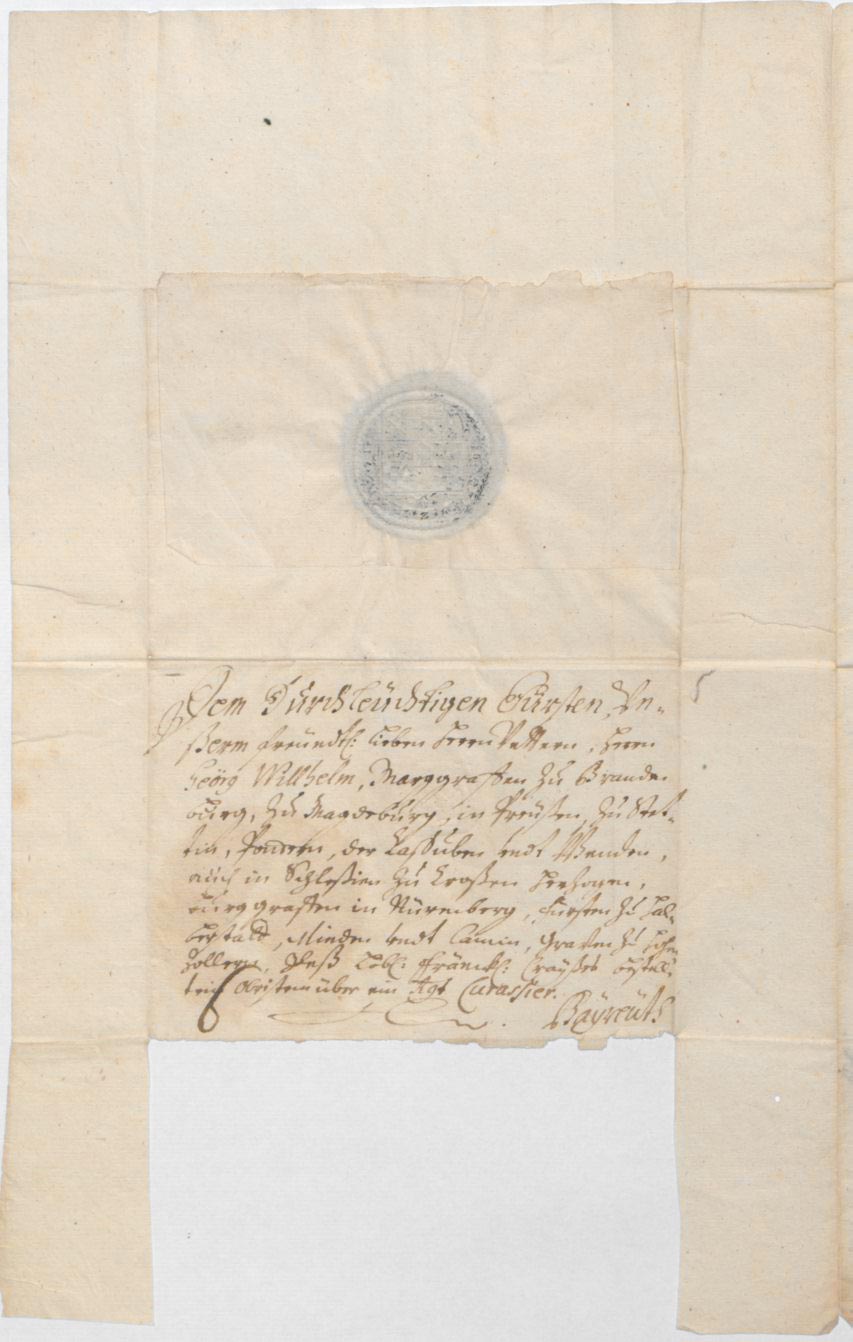 Dem Durchleüchtigen Fürsten, Un-
ßerm freündtl: lieben Herrn Vettern, Herrn
Georg Wilhelm, Marggraffen zu Branden
burg, zu Magdeburg, in Preüßen, zu Stet-
tin, Pommern, der Caßuben undt Wenden,
auch in Schleßien zu Croßen Herzogen,
Burggraffen in Nürenberg, Fürsten zu Hal-
berstadt, Minden undt Camin, Graven zu Hohen
zollern, Deß Löbl: Fränckl: Crayßes bestel-
ten Obristen über ein Rgt Curassier.
Bayreüth
5